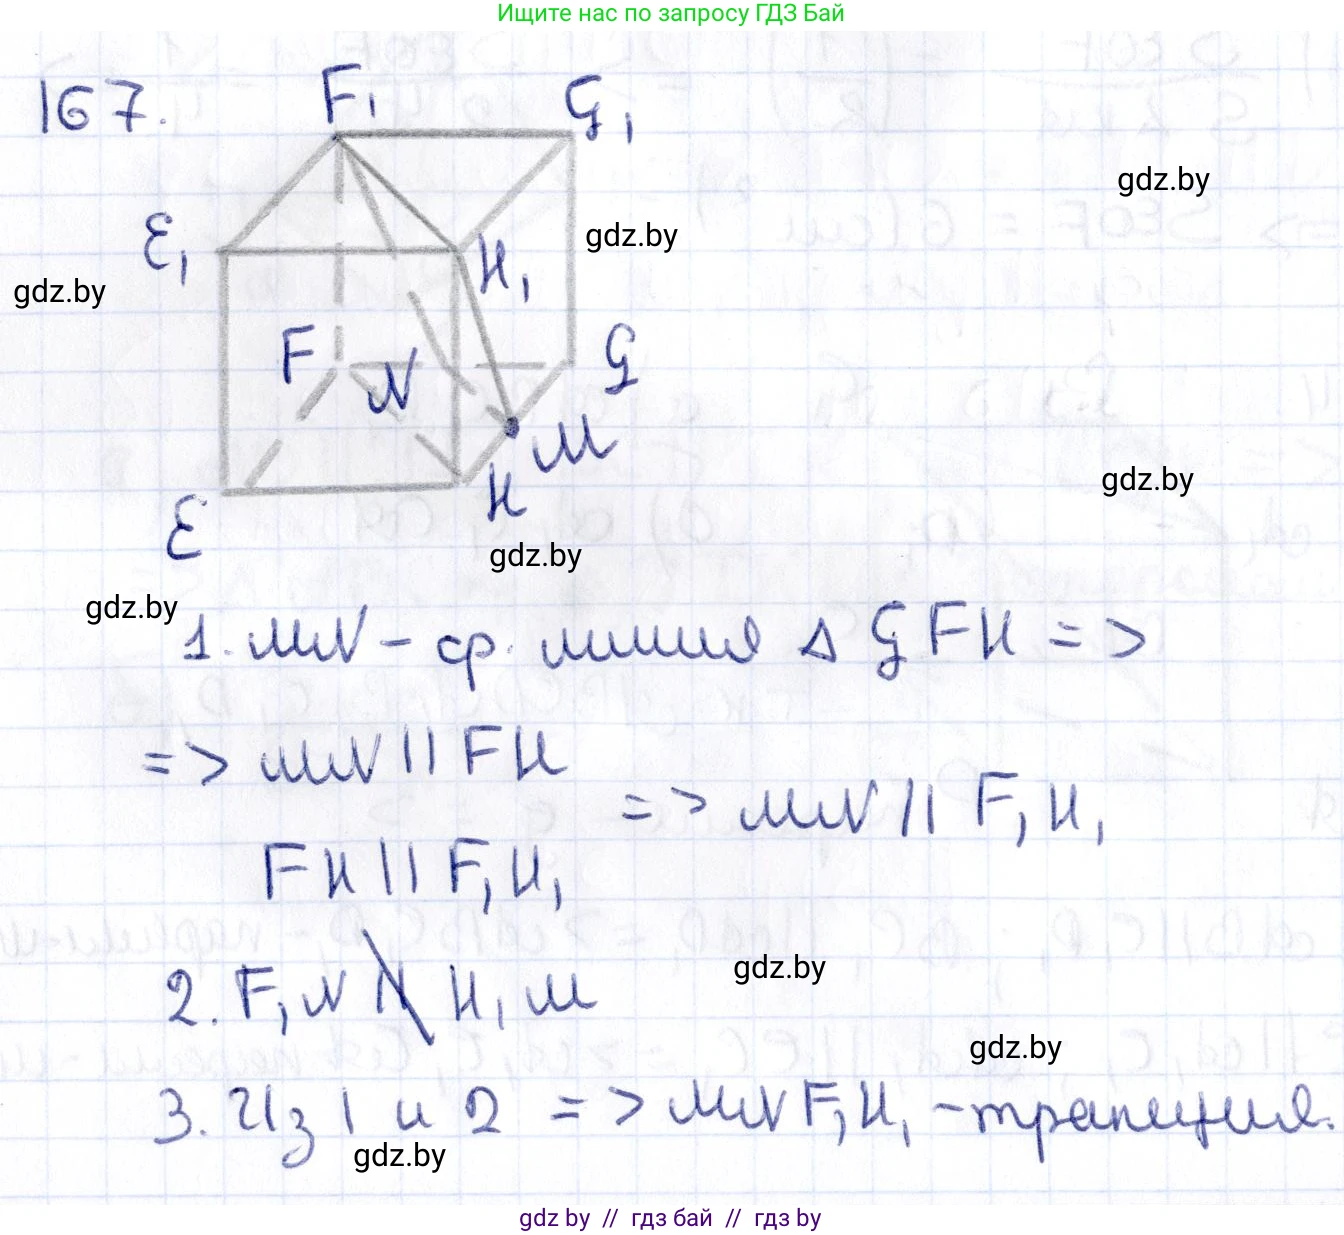 Ищите нас по запросу ГДЗ Бай
167.
F₁
G₁
gdz.by
E₁
gdz.by
H₁
gdz.by
F
N
G
M
gdz.by
H
E
gdz.by
gdz.by
1. MN – ср. линия Δ GFH =>
=> MN || FH
=> MN || F₁H₁
FH || F₁H₁
gdz.by
2. F₁N ∦ H₁M
gdz.by
3. Из 1 и 2 => MNF₁H₁ – трапеция.
gdz.by
gdz by // гдз бай // гдз by